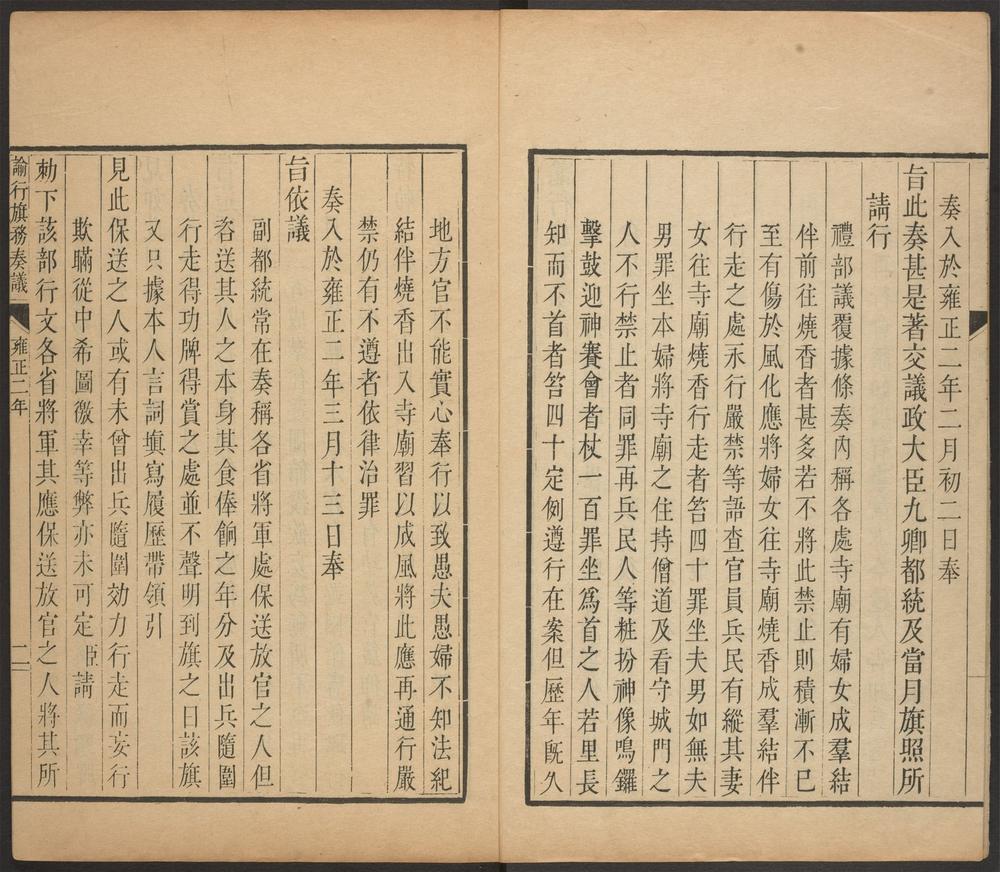 奏入於雍正二年二月初二日奉
旨此奏甚是著交議政大臣九卿都統及當月旗照所
請行
禮部議覆據條奏內稱各處寺廟有婦女成羣結
伴前往燒香者甚多若不將此禁止則積漸不已
至有傷於風化應將婦女往寺廟燒香成羣結伴
行走之處永行嚴禁等語查官員兵民有縱其妻
女往寺廟燒香行走者笞四十罪坐夫男如無夫
男罪坐本婦將寺廟之住持僧道及看守城門之
人不行禁止者同罪再兵民人等粧扮神像鳴鑼
擊鼓迎神賽會者杖一百罪坐爲首之人若里長
知而不首者笞四十定例遵行在案但歷年既久
地方官不能實心奉行以致愚夫愚婦不知法紀
結伴燒香出入寺廟習以成風將此應再通行嚴
禁仍有不遵者依律治罪
奏入於雍正二年三月十三日奉
旨依議
副都統常在奏稱各省將軍處保送放官之人但
咨送其人之本身其食俸餉之年分及出兵隨圍
行走得功牌得賞之處並不聲明到旗之日該旗
又只據本人言詞塡寫履歷帶領引
見此保送之人或有未曾出兵隨圍効力行走而妄行
欺瞞從中希圖徼幸等弊亦未可定臣請
勅下該部行文各省將軍其應保送放官之人將其所
諭行旗務奏議 雍正二年 二